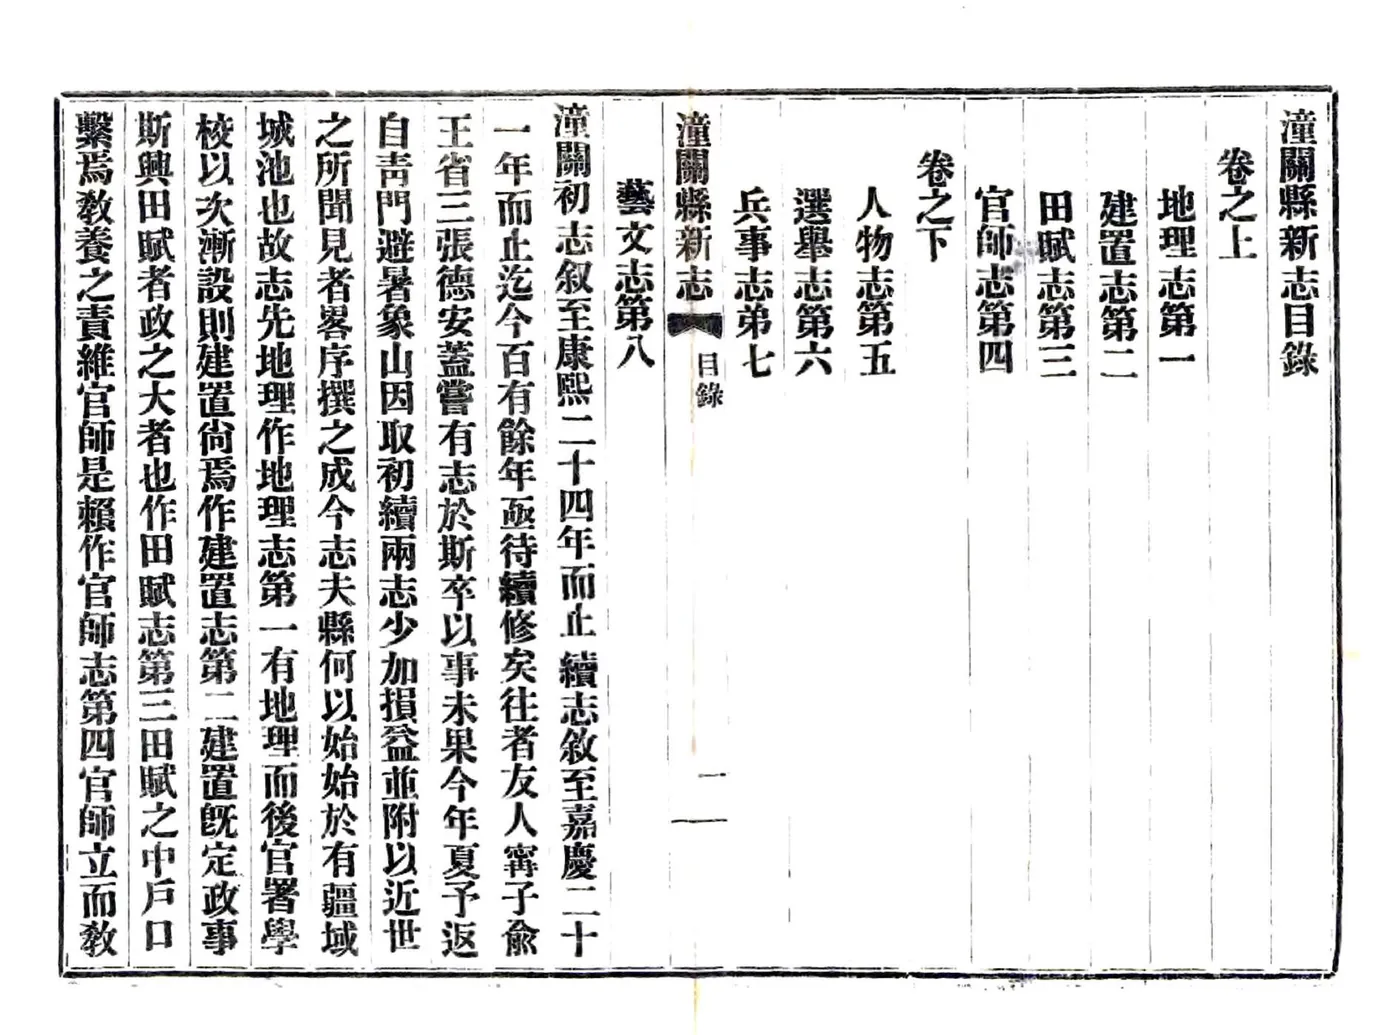 潼關縣新志目錄
卷之上
地理志第一
建置志第二
田賦志第三
官師志第四
卷之下
人物志第五
選舉志第六
兵事志弟七
潼關縣新志 目錄 一
藝文志第八
潼關初志叙至康熙二十四年而止續志敘至嘉慶二十
一年而止迄今百有餘年亟待續修矣往者友人甯子俞
王省三張德安蓋嘗有志於斯卒以事未果今年夏予返
自靑門避暑象山因取初續兩志少加損益並附以近世
之所聞見者畧序撰之成今志夫縣何以始始於有疆域
城池也故志先地理作地理志第一有地理而後官署學
校以次漸設則建置尙焉作建置志第二建置旣定政事
斯興田賦者政之大者也作田賦志第三田賦之中戶口
繫焉敎養之責維官師是賴作官師志第四官師立而敎